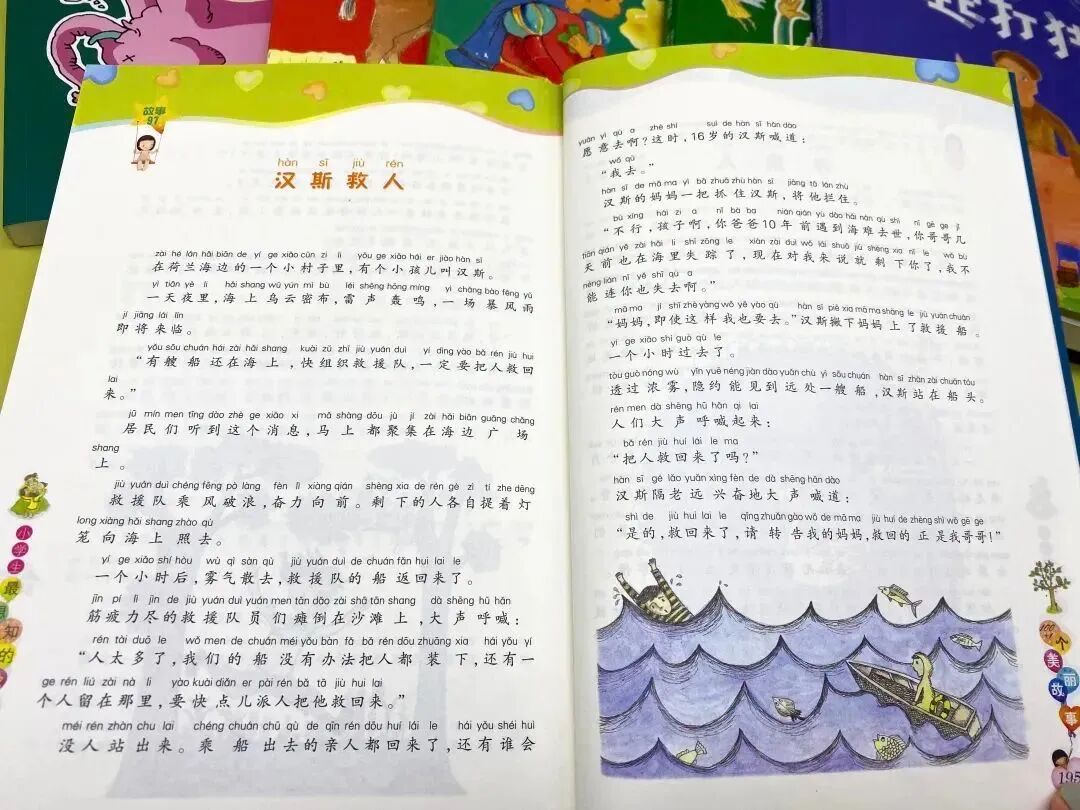 故事
97
hàn sī jiù rén
汉斯救人
zài hé lán hǎi biān de yí ge xiǎo cūn zi li yǒu ge xiǎo hái er jiào hàn sī
在荷兰海边的一个小村子里,有个小孩儿叫汉斯。
yì tiān yè li hǎi shang wū yún mì bù léi shēng hōng míng yì cháng bào fēng yǔ
一天夜里,海上乌云密布,雷声轰鸣,一场暴风雨
jí jiāng lái lín
即将来临。
yǒu sōu chuán hái zài hǎi shang kuài zǔ zhī jiù yuán duì yí dìng yào bǎ rén jiù hui
“有艘船还在海上,快组织救援队,一定要把人救回
lai
来。”
jū mín men tīng dào zhè ge xiāo xi mǎ shàng dōu jù jí zài hǎi biān guǎng chǎng
居民们听到这个消息,马上都聚集在海边广场
shang
上。
jiù yuán duì chéng fēng pò làng fèn lì xiàng qián shèng xia de rén gè zì tí zhe dēng
救援队乘风破浪,奋力向前。剩下的人各自提着灯
long xiàng hǎi shang zhào qù
笼向海上照去。
yí ge xiǎo shí hòu wù qì sàn qù jiù yuán duì de chuán fǎn hui lai le
一个小时后,雾气散去,救援队的船返回来了。
jīn pí lì jìn de jiù yuán duì yuán men tān dǎo zài shā tān shang dà shēng hū hǎn
筋疲力尽的救援队员们瘫倒在沙滩上,大声呼喊:
rén tài duō le wǒ men de chuán méi yǒu bàn fǎ bǎ rén dōu zhuāng xia hái yǒu yí
“人太多了,我们的船没有办法把人都装下,还有一
ge rén liú zài nà li yào kuài diǎn er pài rén bǎ tā jiù huí lai
个人留在那里,要快点儿派人把他救回来。”
méi rén zhàn chu lai chéng chuán chū qù de qīn rén dōu huí lái le hái yǒu shéi huì
没人站出来。乘船出去的亲人都回来了,还有谁会
yuàn yì qù a zhè shí suì de hàn sī hǎn dào
愿意去啊?这时,16岁的汉斯喊道:
wǒ qù
“我去。”
hàn sī de mā ma yì bǎ zhuā zhù hàn sī jiāng tā lán zhù
汉斯的妈妈一把抓住汉斯,将他拦住。
bù xíng hái zi a nǐ bà ba nián qián yù dào hǎi nàn qù shì nǐ gē ge jǐ
“不行,孩子啊,你爸爸10年前遇到海难去世,你哥哥几
tiān qián yě zài hǎi li shī zōng le xiàn zài duì wǒ lái shuō jiù shèng xia nǐ le wǒ bù
天前也在海里失踪了,现在对我来说就剩下你了,我不
néng lián nǐ yě shī qù a
能连你也失去啊。”
mā ma jí shǐ zhè yàng wǒ yě yào qù hàn sī piē xia mā ma shàng le jiù yuán chuán
“妈妈,即使这样我也要去。”汉斯撇下妈妈上了救援船。
yí ge xiǎo shí guò qù le
一个小时过去了。
tòu guò nóng wù yǐn yuē néng jiàn dào yuǎn chù yì sōu chuán hàn sī zhàn zài chuán tóu
透过浓雾,隐约能见到远处一艘船,汉斯站在船头。
rén men dà shēng hū hǎn qi lai
人们大声呼喊起来:
bǎ rén jiù huí lái le ma
“把人救回来了吗?”
hàn sī gé lǎo yuǎn xīng fèn de dà shēng hǎn dào
汉斯隔老远兴奋地大声喊道:
shì de jiù huí lai le qǐng zhuǎn gào wǒ de mā ma jiù huí de zhèng shì wǒ gē ge
“是的,救回来了,请转告我的妈妈,救回的正是我哥哥!”
小学生最
知的
100
个美丽故事
195